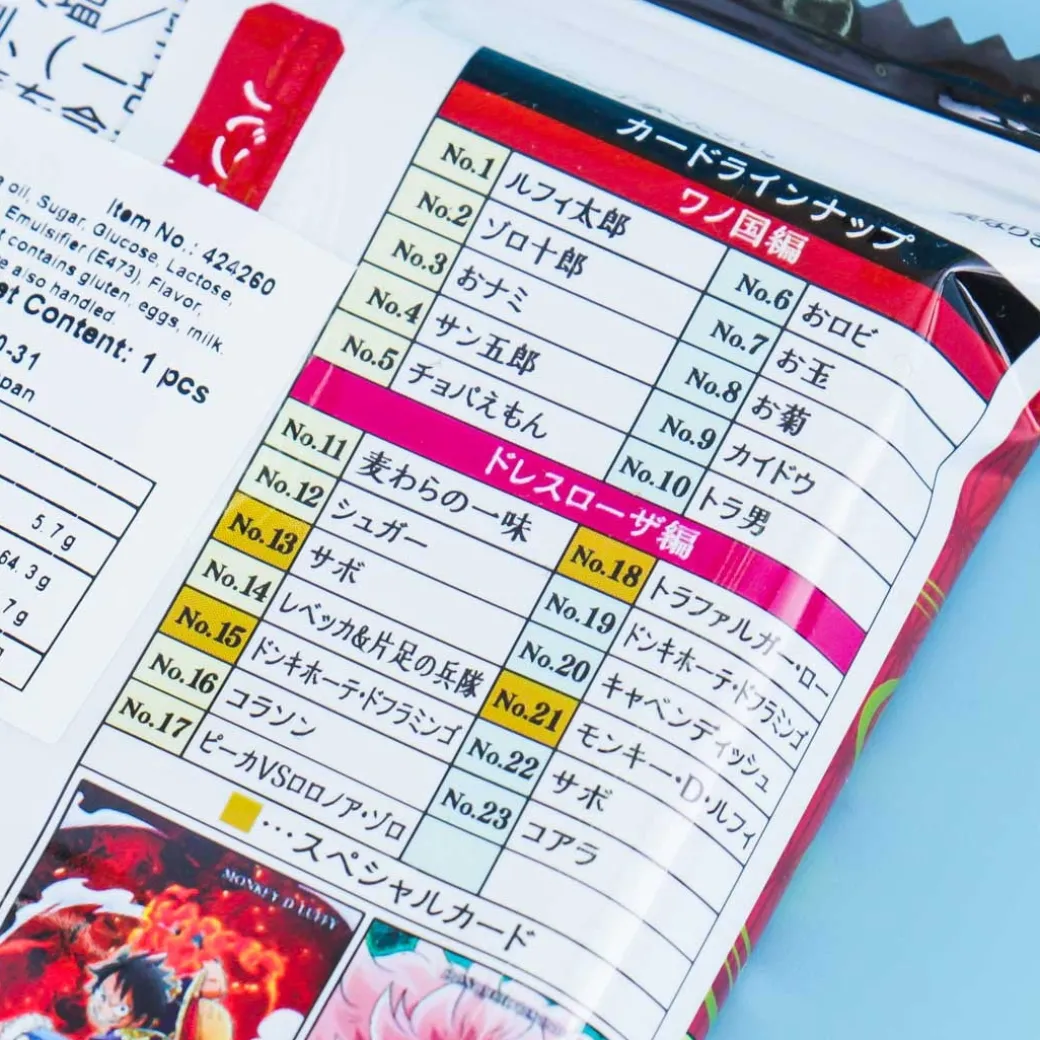 Item No.: 424260
oil, Sugar, Glucose, Lactose,
Emulsifier (E473), Flavor,
contains gluten, eggs, milk.
also handled.
Content: 1 pcs
0-31
pan
5.7g
64.3g
7g
カードラインナップ
ワノ国編
No.1 ルフィ太郎
No.2 ゾロ十郎
No.3 おナミ
No.4 サン五郎
No.5 チョパえもん
No.6 おロビ
No.7 お玉
No.8 お菊
No.9 カイドウ
No.10 トラ男
ドレスローザ編
No.11 麦わらの一味
No.12 シュガー
No.13 サボ
No.14 レベッカ&片足の兵隊
No.15 ドンキホーテ・ドフラミンゴ
No.16 コラソン
No.17 ピーカVSロロノア・ゾロ
No.18 トラファルガー・ロー
No.19 ドンキホーテ・ドフラミンゴ
No.20 キャベンディッシュ
No.21 モンキー・D・ルフィ
No.22 サボ
No.23 コアラ
…スペシャルカード
MONKEY D LUFFY